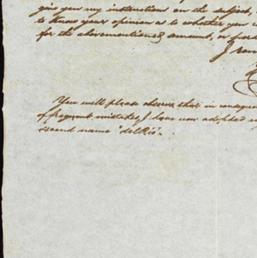 give you my instructions on the subject,
to know your opinion as to whether you
for the abovementioned amount, or
I
You will please observe that in consequence
of frequent mistakes I have now adopted
second name "delRio".